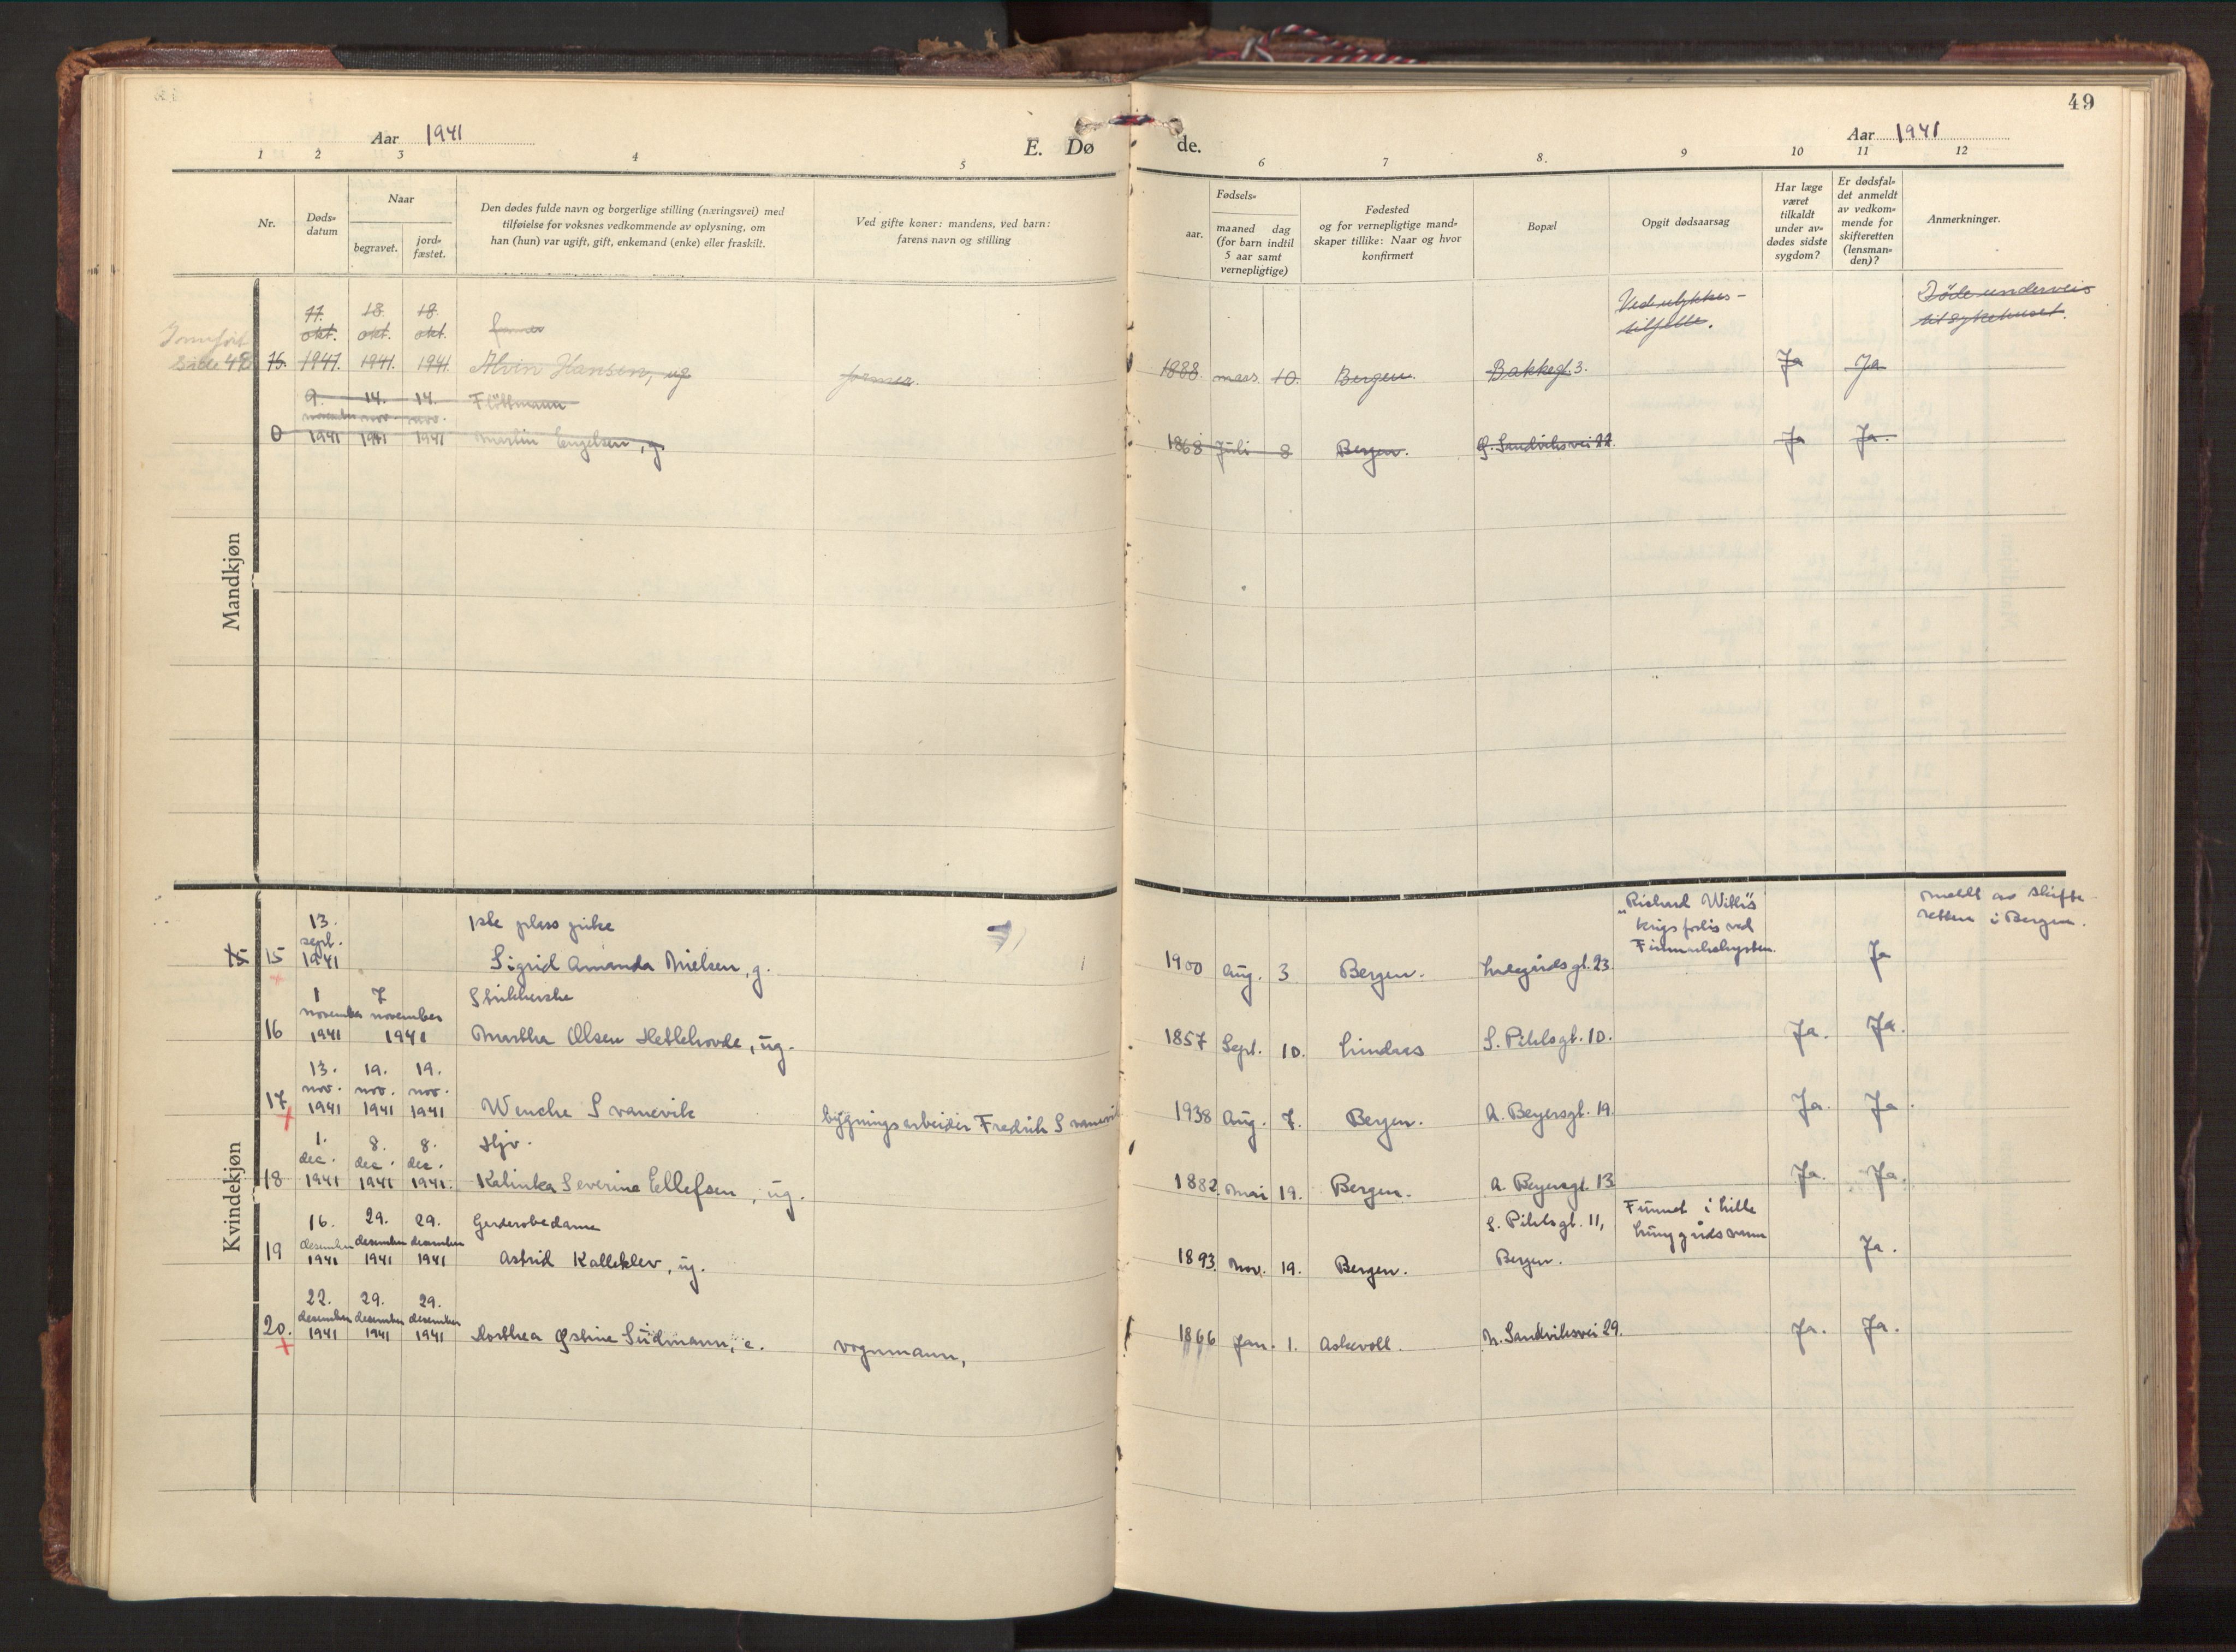 49
Aar 1941
E. Dø
de.
Aar 1941
1 2 3 4 5 6 7 8. 9 10 11 12
Nr.
Døds-
datum
Naar
begravet.
jord-
fæstet.
Den dødes fulde navn og borgerlige stilling (næringsvei) med
tilføielse for voksnes vedkommende av oplysning, om
han (hun) var ugift, gift, enkemand (enke) eller fraskilt.
Ved gifte koner: mandens, ved barn:
farens navn og stilling
Fødsels-
aar.
maaned dag
(for barn indtil
5 aar samt
vernepligtige)
Fødested
og for vernepligtige mand-
skaper tillike: Naar og hvor
konfirmert
Bopæl
Opgit dødsaarsag
Har læge
været
tilkaldt
under av-
dødes sidste
sygdom?
Er dødsfal-
det anmeldt
av vedkom-
mende for
skifteretten
(lensman-
den)?
Anmerkninger.
Mandkjøn
17. 18. 18.
okt. okt. okt.
Ved ulykkes-
tilfelle.
Døde underveis
til sykehuset.
Innført
Side 48 15. 1941. 1941. 1941. Alvin Hansen, ug. former. 1888. mars. 10. Bergen. Bakkegt. 3. Ja Ja
9. 14. 14. Fløttmann
november nov. nov.
0 1941 1941 1941 Martin Engelsen, g 1868 Juli 8 Bergen. G. Sandviksvei 22. Ja Ja.
Kvindekjøn
13. 1ste plass pike
sept.
15 15 1941 Sigrid Amanda Nielsen, g. 1900 Aug. 3 Bergen. Ladegårdsgt. 23. Ja
"Richard With's
krigsforlis ved
Finnmarkskysten.
Meldt av skifte-
retten i Bergen.
1 7 Strikkerske
november november
16 1941 1941 Martha Olsen Hetlehovde, ug. 1857 Sept. 10. Lindaas S. Pihlsgt. 10. Ja. Ja.
13. 19. 19.
nov. nov. nov.
17 1941 1941 1941 Wenche Svanevik bygningsarbeider Fredrik Svanevik 1938 Aug. 7. Bergen. A. Beyersgt. 19. Ja. Ja.
1. 8. 8. Hjv.
dec. dec. dec.
18 1941 1941 1941. Kalinka Severine Ellefsen, ug. 1882. Mai 19. Bergen. A. Beyersgt. 13 Ja. Ja.
16. 29. 29. Garderobedame S. Pihlsgt. 11, Funnet i Lille
desember desember desember Lunggårdsvann
19 1941 1941 1941 Astrid Kalleklev, ug. 1893. Nov. 19. Bergen. Bergen. Ja.
22. 29. 29.
desember desember desember
20. 1941 1941 1941 Dorthea Østine Südmann, e. vognmann, 1866 Jan. 1. Askevoll. N. Sandviksvei 29. Ja. Ja.